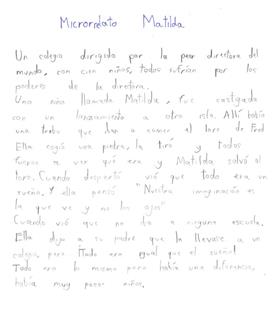 Microrrelato Matilda
Un colegio dirigido por la peor directora del
mundo, con cien niños, todos sufrían por los
poderes de la directora.
Una niña llamada Matilda, fue castigada
con un lanzamiento a otra isla. Allí había
una tribu que iban a comer al loro de Fred
Ella cogió una piedra, la tiró y todos
fueron a ver qué era y Matilda salvó al
loro. Cuando despertó vió que todo era un
sueño. Y ella pensó "Nuestra imaginación es
la que ve y no los ojos"
Cuando vió que no iba a ninguna escuela.
Ella dijo a su padre que la llevase a un
colegio, pero ¡Todo era igual que el sueño!
Todo era lo mismo pero había una diferencia,
había muy pocos niños.